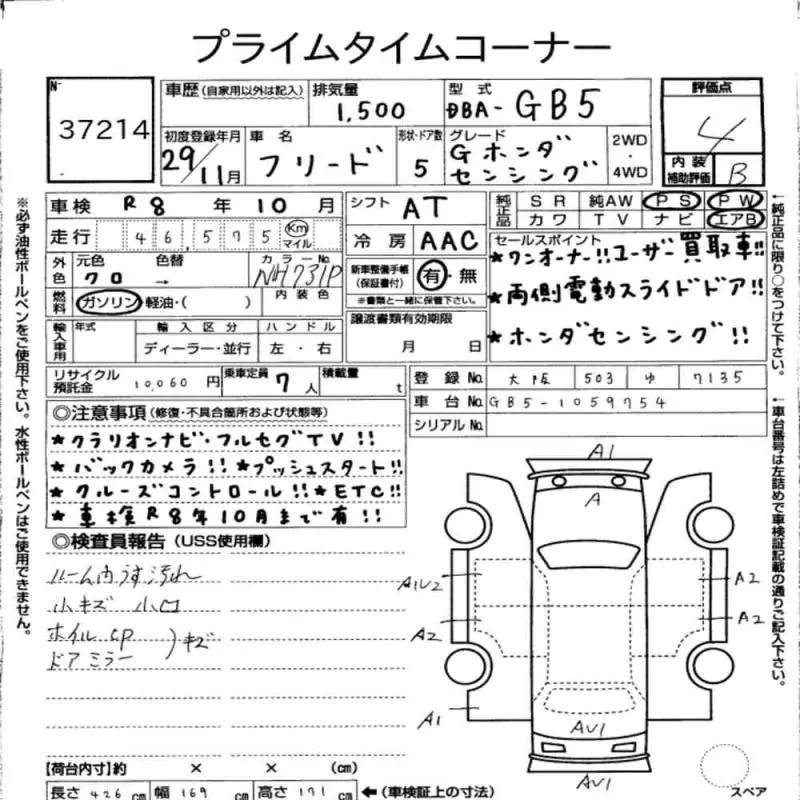 プライムタイムコーナー
№
37214
車歴 (自家用以外は記入)
排気量
1,500
型式
DBA- GB5
評価点
4
初度登録年月
29/11月
車名
フリード
形状・ドア数
5
グレード
Gホンダ
センシング
2WD
・
4WD
内装
補助評価
B
車検 R8年10月
シフト AT
純正品
SR 純AW PS PW
カワ TV ナビ エアB
走行 46,575 Km マイル
冷房 AAC
セールスポイント
★ワンオーナー!!ユーザー買取車!!
★両側電動スライドドア!!
★ホンダセンシング!!
外色
元色 色替 カラーNo.
クロ → NH731P
新車整備手帳
(保証書付)
有・無
※書類と一緒に保管下さい。
燃料
ガソリン・軽油・( )
内装色
輸入車用
年式 輸入区分 ハンドル
ディーラー・並行 左・右
譲渡書類有効期限
月 日
リサイクル
預託金
10,060円
乗車定員 7人
積載量 t
登録No. 大阪 503 ゆ 7135
車台No. GB5-1059754
シリアルNo.
◎注意事項 (修復・不具合個所および状態等)
★クラリオンナビ・フルセグTV!!
★バックカメラ!!★プッシュスタート!!
★クルーズコントロール!!★ETC!!
★車検R8年10月まで有!!
◎検査員報告 (USS使用欄)
ルーム内うす汚れ
小キズ 小凹
ホイルCP
ドアミラー
)キズ
A1
A
A1U2
A2
A2
A2
A1
AU1
AU1
スペア
【荷台内寸】約 × × (cm)
長さ 426cm 幅 169cm 高さ 171cm ←(車検証上の寸法)
※必ず油性ボールペンをご使用下さい。水性ボールペンはご使用できません。
←純正品に限り○をつけて下さい。
←車台番号は左詰めで車検証記載の通りご記入下さい。